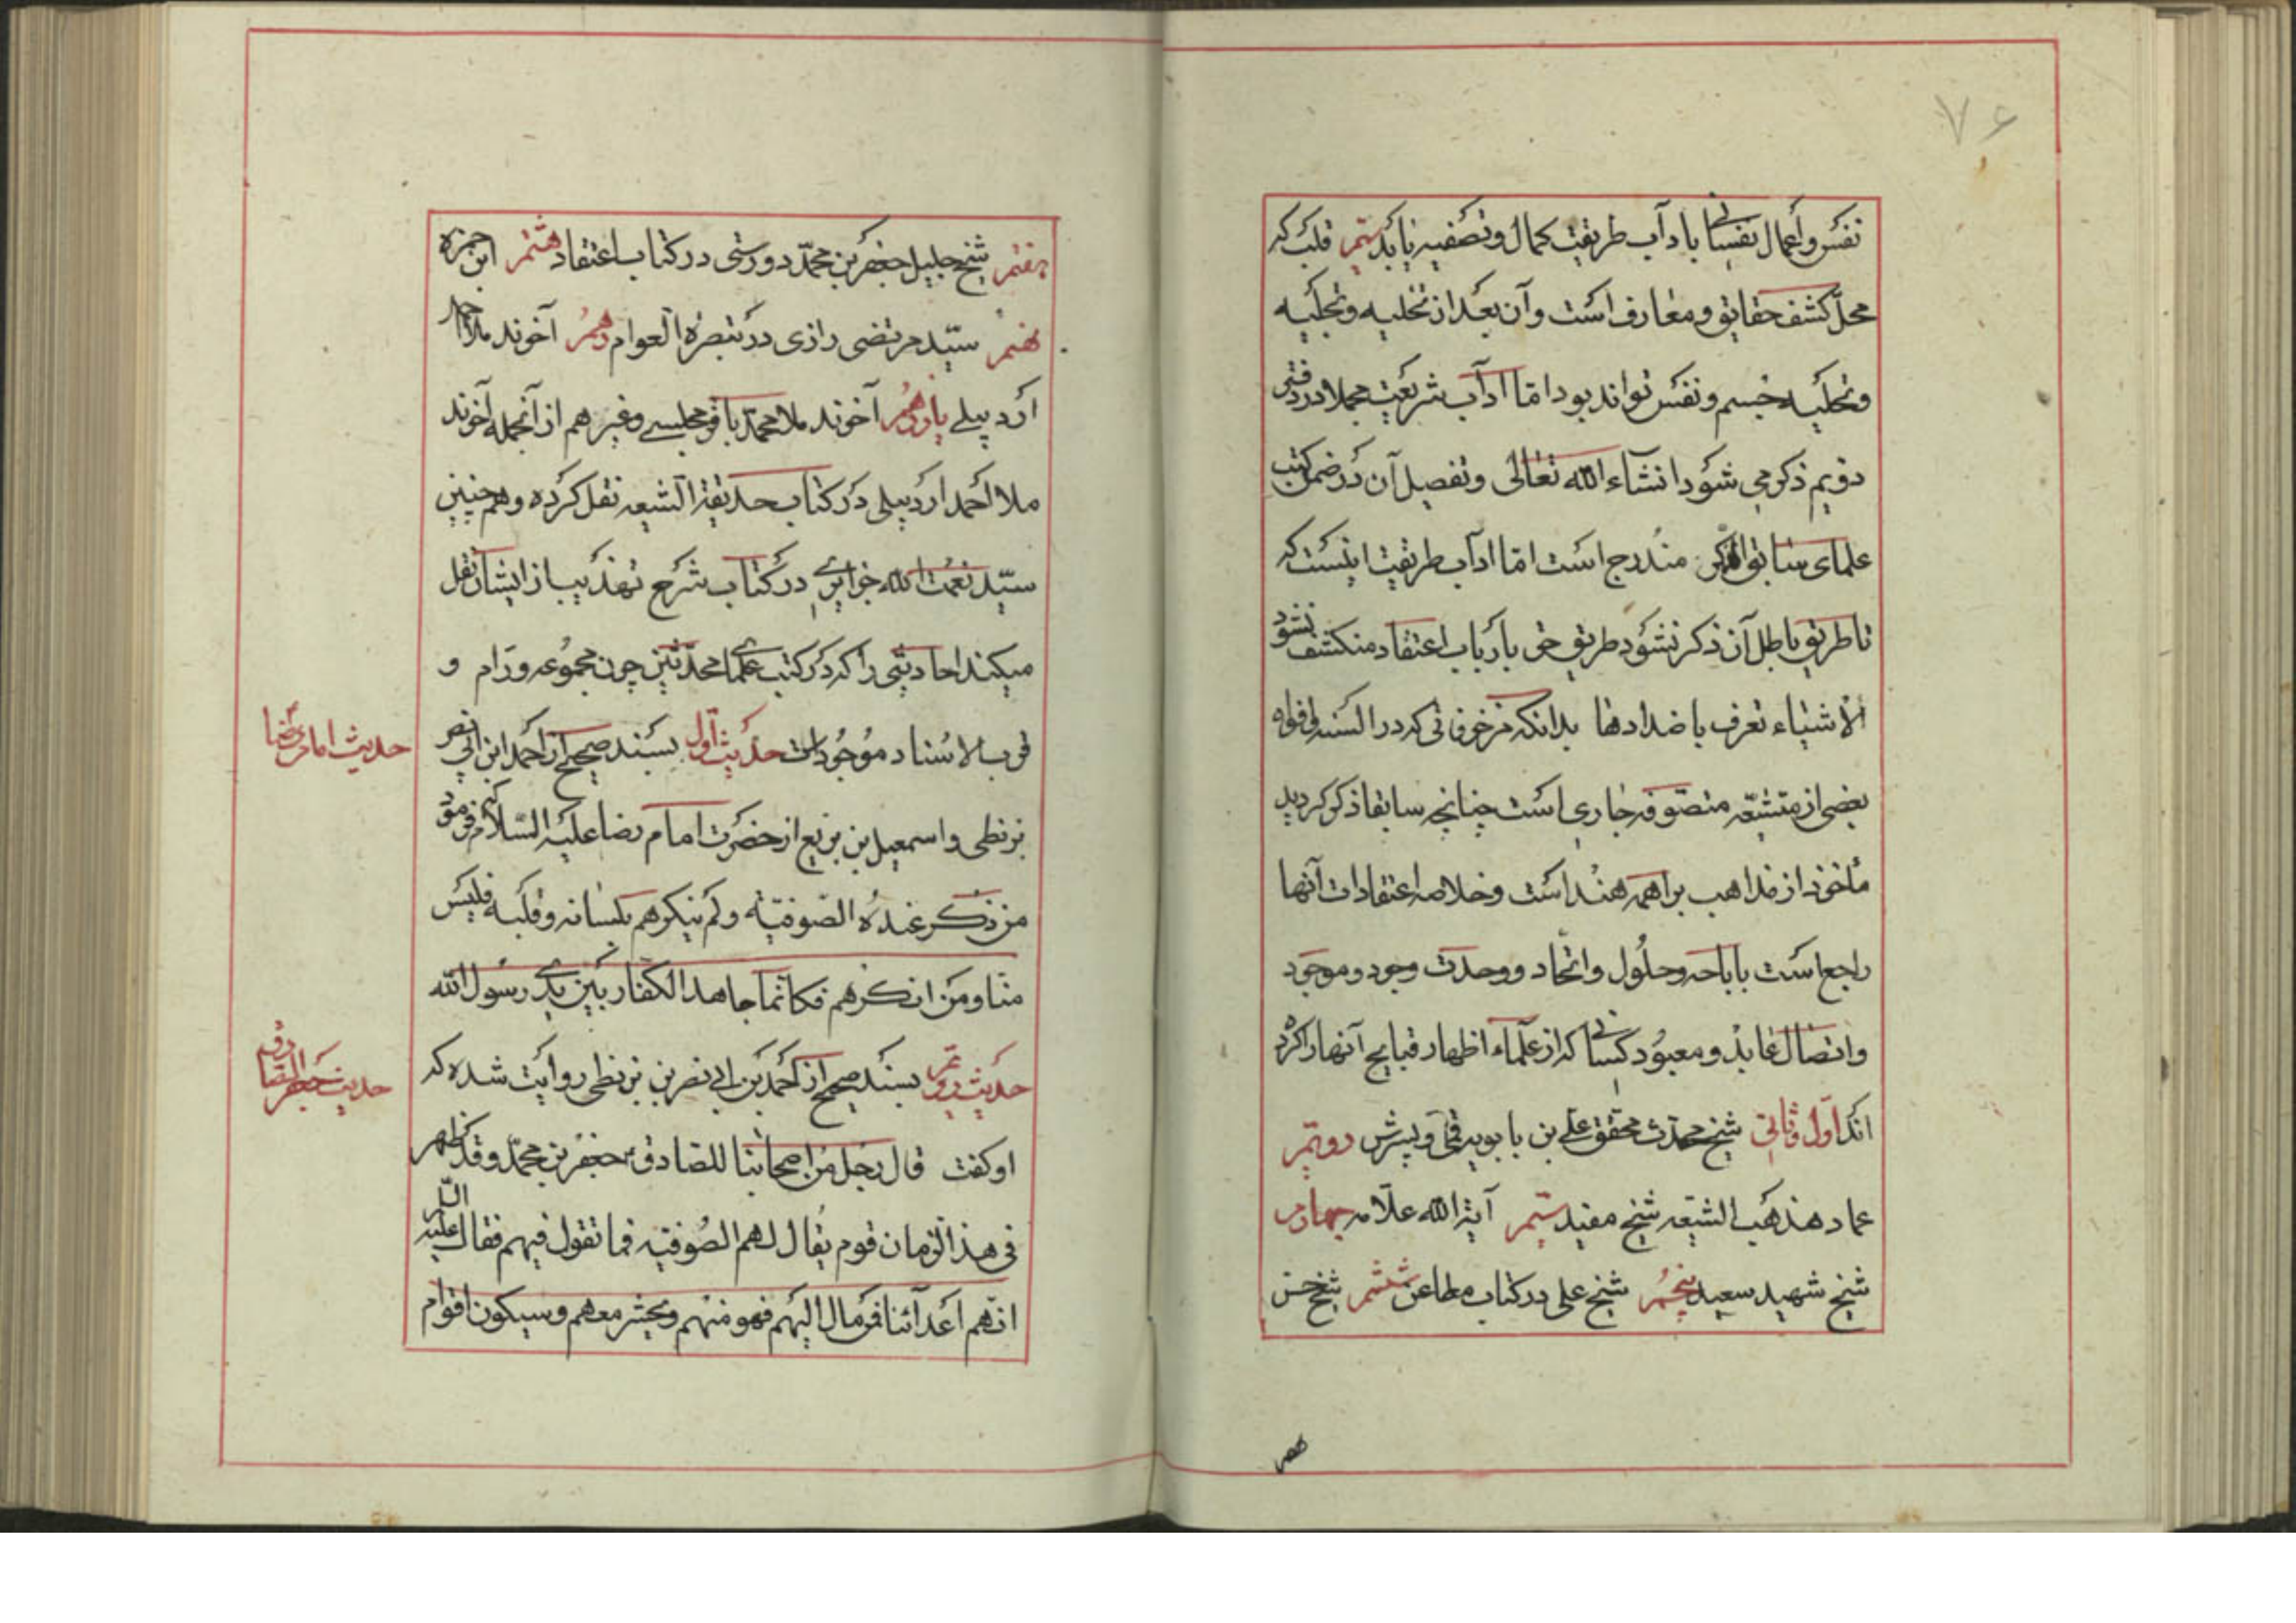 ۷۶
نفس و اعمال نفسانی با دآب طریقت کمال و تصفیه یابد سیم قلب که
محلّ کشف حقایق و معارف است و آن بعد از تخلیه و تجلیه
و تحلیه جسم و نفس تواند بود امّا اداب شریعت مجملا در دفتر
دویم ذکر می شود انشاء الله تعالی و تفصیل آن در ضمن کتب
علمای سابق مندرج است امّا اداب طریقت اینست که
تا طریق باطل آن ذکر نشود طریق حق بارباب اعتقاد منکشف نشود
الاشیاء تعرف باضدادها بدانکه مزخرفاتی که در السنه و افواه
بعضی از متشیّعه متصوّفه جاری است چنانچه سابقا ذکر کردید
مأخوذ از مذاهب براهمه هند است و خلاصه اعتقادات آنها
راجع است باباحه و حلول و اتّحاد و وحدت وجود و موجود
و اتصال عابد و معبود کسانی که از علماء اظهار قبایح آنها را کرده
اند اوّل و ثانی شیخ محدث محقق علی بن بابویه قمی و پسرش دویّم
عماد مذهب الشیعه شیخ مفید سیّم آیة الله علّامه چهارم
شیخ شهید سعید پنجم شیخ علی در کتاب مطاعن ششم شیخ حسن
هفتم
هفتم شیخ جلیل جعفر بن محمّد دورستی در کتاب اعتقاد هشتم ابن حمزه
نهم سیّد مرتضی رازی در تبصرة العوام دهم آخوند ملا احمد
اردبیلے یازدهم آخوند ملا محمد باقر مجلسے و غیر هم از آنجمله آخوند
ملا احمد اردبیلی در کتاب حدیقة الشیعه نقل کرده و همچنین
سیّد نعمت الله جزایری در کتاب شرح تهذیب از ایشان نقل
میکند احادیثی را که در کتب علمای محدّثین چون مجموعه ورّام و
قرب الاسناد موجود است حدیث اوّل بسند صحیح از احمد ابن ابی نصر
بزنطی و اسمعیل بن بزیع از حضرت امام رضا علیه السّلام که فرمود
من ذکر عنده الصّوفیّه و لم ینکرهم بلسانه و قلبه فلیس
منّا و من انکرهم فکانّما جاهد الکفّار بین یدی رسول الله
حدیث دویّم بسند صحیح از احمد بن ابی نصر بن بزنطی روایت شده که
او کفت قال رجل من اصحابنا للصّادق جعفر بن محمّد و قد ظهر
فی هذ الزّمان قوم یقال لهم الصّوفیّه فما تقول فیهم فقال علیه السّلام
انّهم اعدآئنا فمن مال الیهم فهو منهم و یحشر معهم و سیکون اقوام
حدیث امام رضا
حدیث جعفر الصّادق